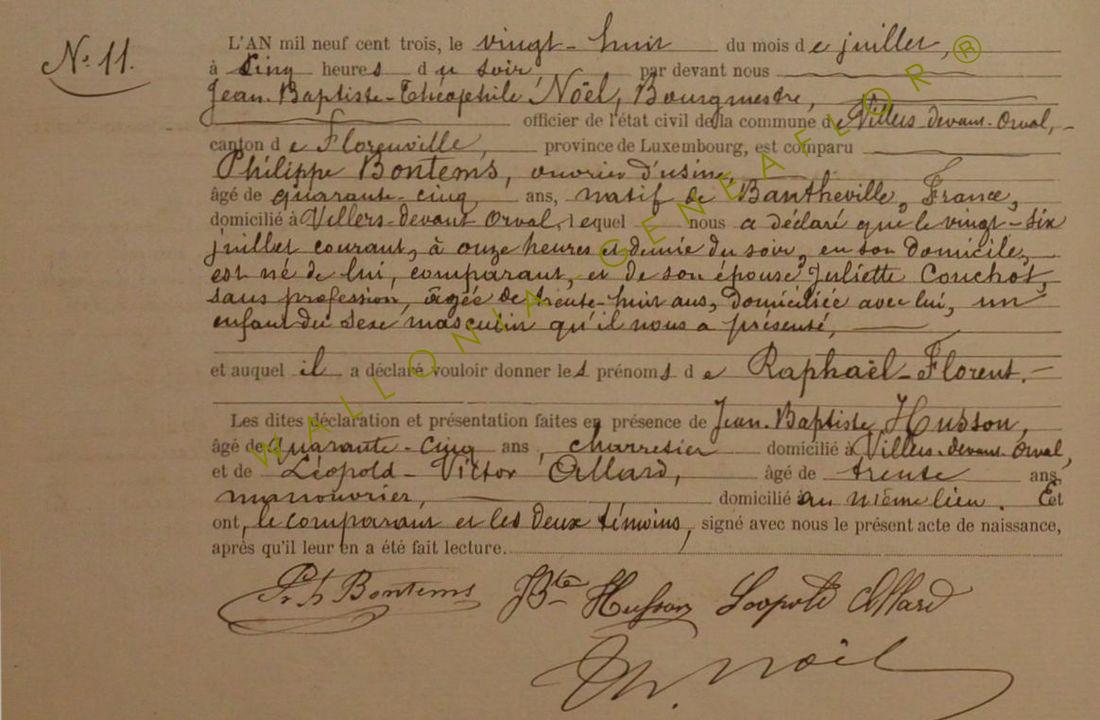 N° 11.
L'AN mil neuf cent trois, le vingt-huit du mois de juillet,
à cinq heures du soir, par devant nous
Jean-Baptiste-Théophile Noël, Bourgmestre,
officier de l'état civil de la commune de Villers-devant-Orval,
canton de Florenville, province de Luxembourg, est comparu
Philippe Bontems, ouvrier d'usine,
âgé de quarante-cinq ans, natif de Bantheville, France,
domicilié à Villers-devant-Orval, lequel nous a déclaré que le vingt-six
juillet courant, à onze heures et demie du soir, en son domicile,
est né de lui, comparant, et de son épouse Juliette Couchot,
sans profession, âgée de trente-huit ans, domiciliée avec lui, un
enfant du sexe masculin qu'il nous a présenté,
et auquel il a déclaré vouloir donner les prénoms de Raphaël-Florent.
Les dites déclaration et présentation faites en présence de Jean-Baptiste Husson,
âgé de quarante-cinq ans, charretier domicilié à Villers-devant-Orval,
et de Léopold-Victor Allard, âgé de trente ans,
manouvrier, domicilié au même lieu. Et
ont, le comparant et les deux témoins, signé avec nous le présent acte de naissance,
après qu'il leur en a été fait lecture.
Ph Bontems JBte Husson Léopold Allard
Th. Noël
WALLONIA GENEAFLOR ®